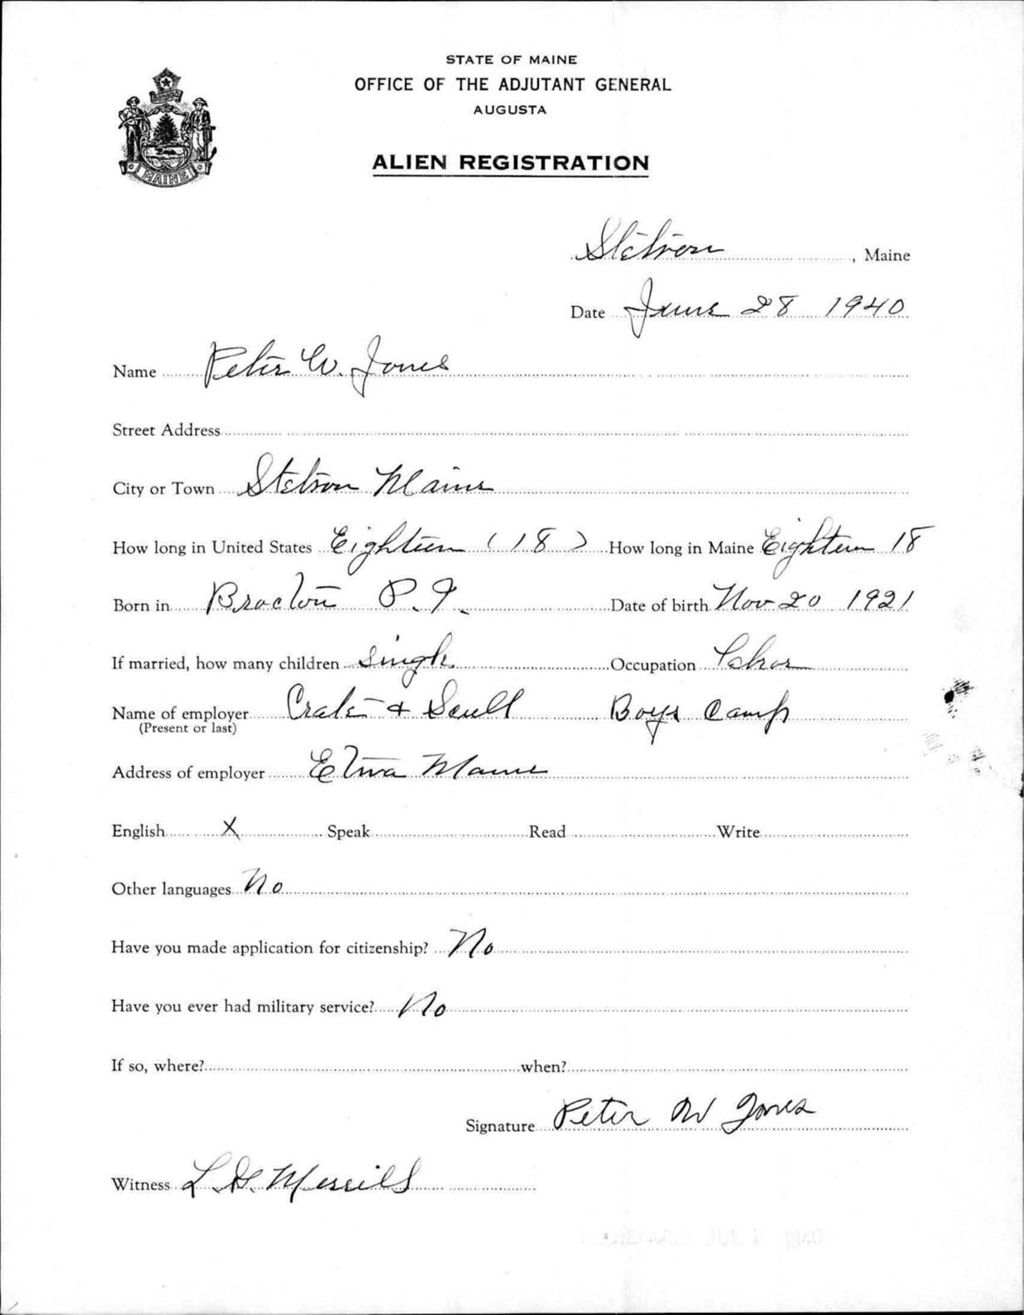 STATE OF MAINE
OFFICE OF THE ADJUTANT GENERAL
AUGUSTA
ALIEN REGISTRATION
MAINE
Stetson, Maine
Date June 28 1940
Name Peter W. Jones
Street Address
City or Town Stetson Maine
How long in United States Eighteen (18) How long in Maine Eighteen 18
Born in P. I. Date of birth Nov 20 1921
If married, how many children Single Occupation
Name of employer & Boys Camp
(Present or last)
Address of employer Etna Maine
English X Speak Read Write
Other languages No
Have you made application for citizenship? No
Have you ever had military service? No
If so, where? when?
Signature Peter W Jones
Witness L H. Merrill
JUL 1 1940